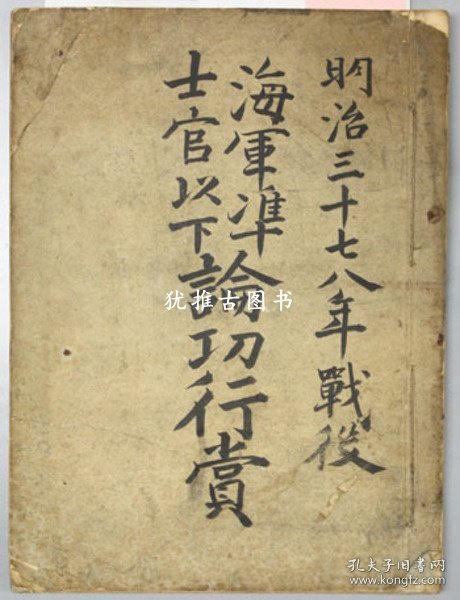 明治三十七八年戰役
海軍準
士官以下
論功行賞
犹推古图书
孔夫子旧书网